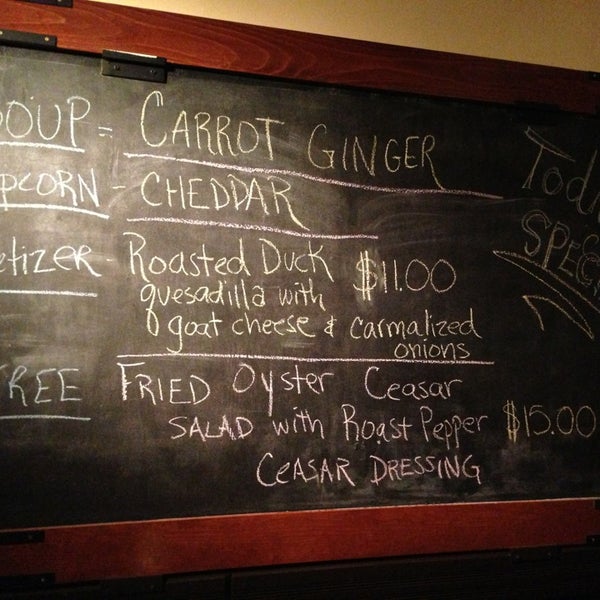 SOUP = CARROT GINGER
POPCORN - CHEDDAR
etizer - Roasted Duck $11.00
quesadilla with
goat cheese & carmalized
onions
TREE FRIED Oyster Ceasar
SALAD with Roast Pepper $15.00
CEASAR DRESSING
Toda
SPECI